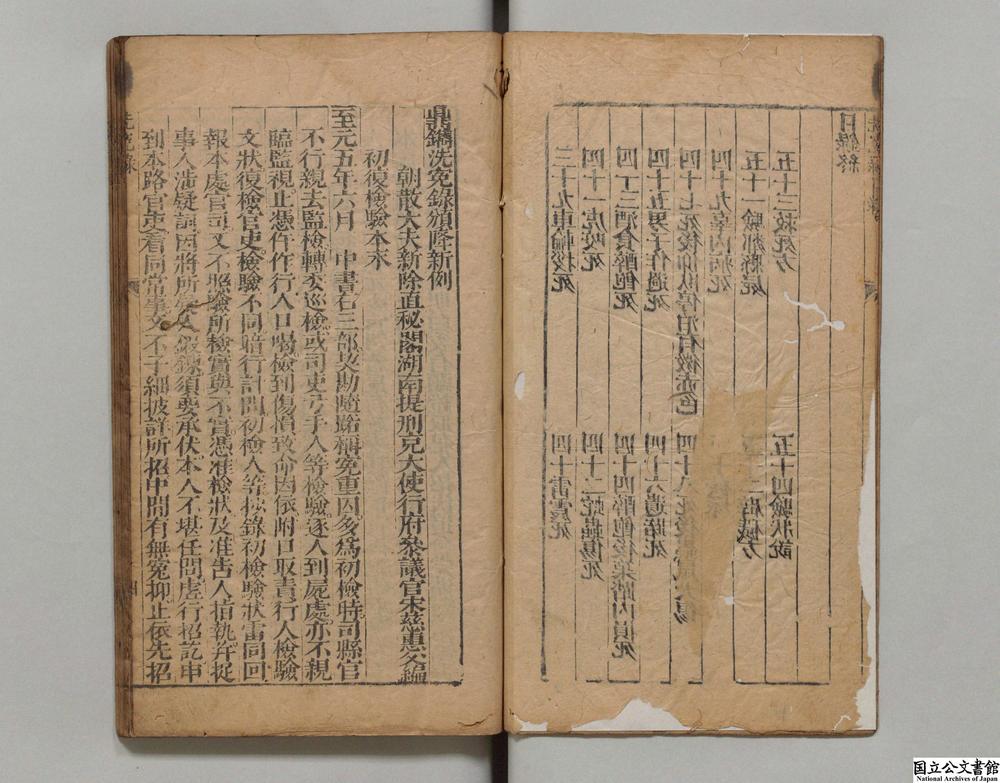 三十九車輪拶死
四十雷震死
四十一虎咬死
四十二蛇蟲傷死
四十三酒食醉飽死
四十四醉飽後築踏内損死
四十五男子作過死
四十六遺路死
四十七死後仰臥停泊有微赤色
四十八死後蟲鼠犬傷
四十九辜内病死
五十一驗鄰縣屍
方
五十三救死方
五十四驗狀說
目錄終
鼎鐫洗冤錄頒降新例
朝散大夫新除直秘閣湖南提刑充大使行府參議官宋慈惠父編
初復檢驗本末
至元五年六月 中書右三部契勘隨路稱冤重囚多爲初檢時司縣官
不行親去監檢轉委巡檢或司吏弓手人等檢驗逐人到屍處亦不親
臨監視止憑仵作行人口喝檢到傷損致命因依附口取責行人檢驗
文狀復檢官吏檢驗不同暗行計問初檢人等抄錄初檢驗狀雷同回
報本處官司又不照驗所檢實與不實憑准檢狀及准告人指執并捉
事人涉疑詞因將所疑人鍛鍊須要承伏本人不堪任問虛行招訖申
到本路官吏看同常事文不子細披詳所招中間有無冤抑止依先招
洗冤錄
国立公文書館
National Archives of Japan